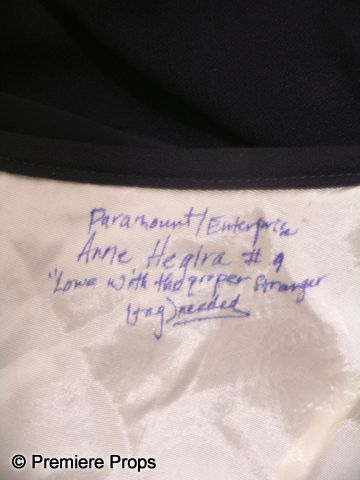 Paramount/Enterprise
Anne Hegira # 9
"Love with the proper Stranger
(tag) needed
© Premiere Props